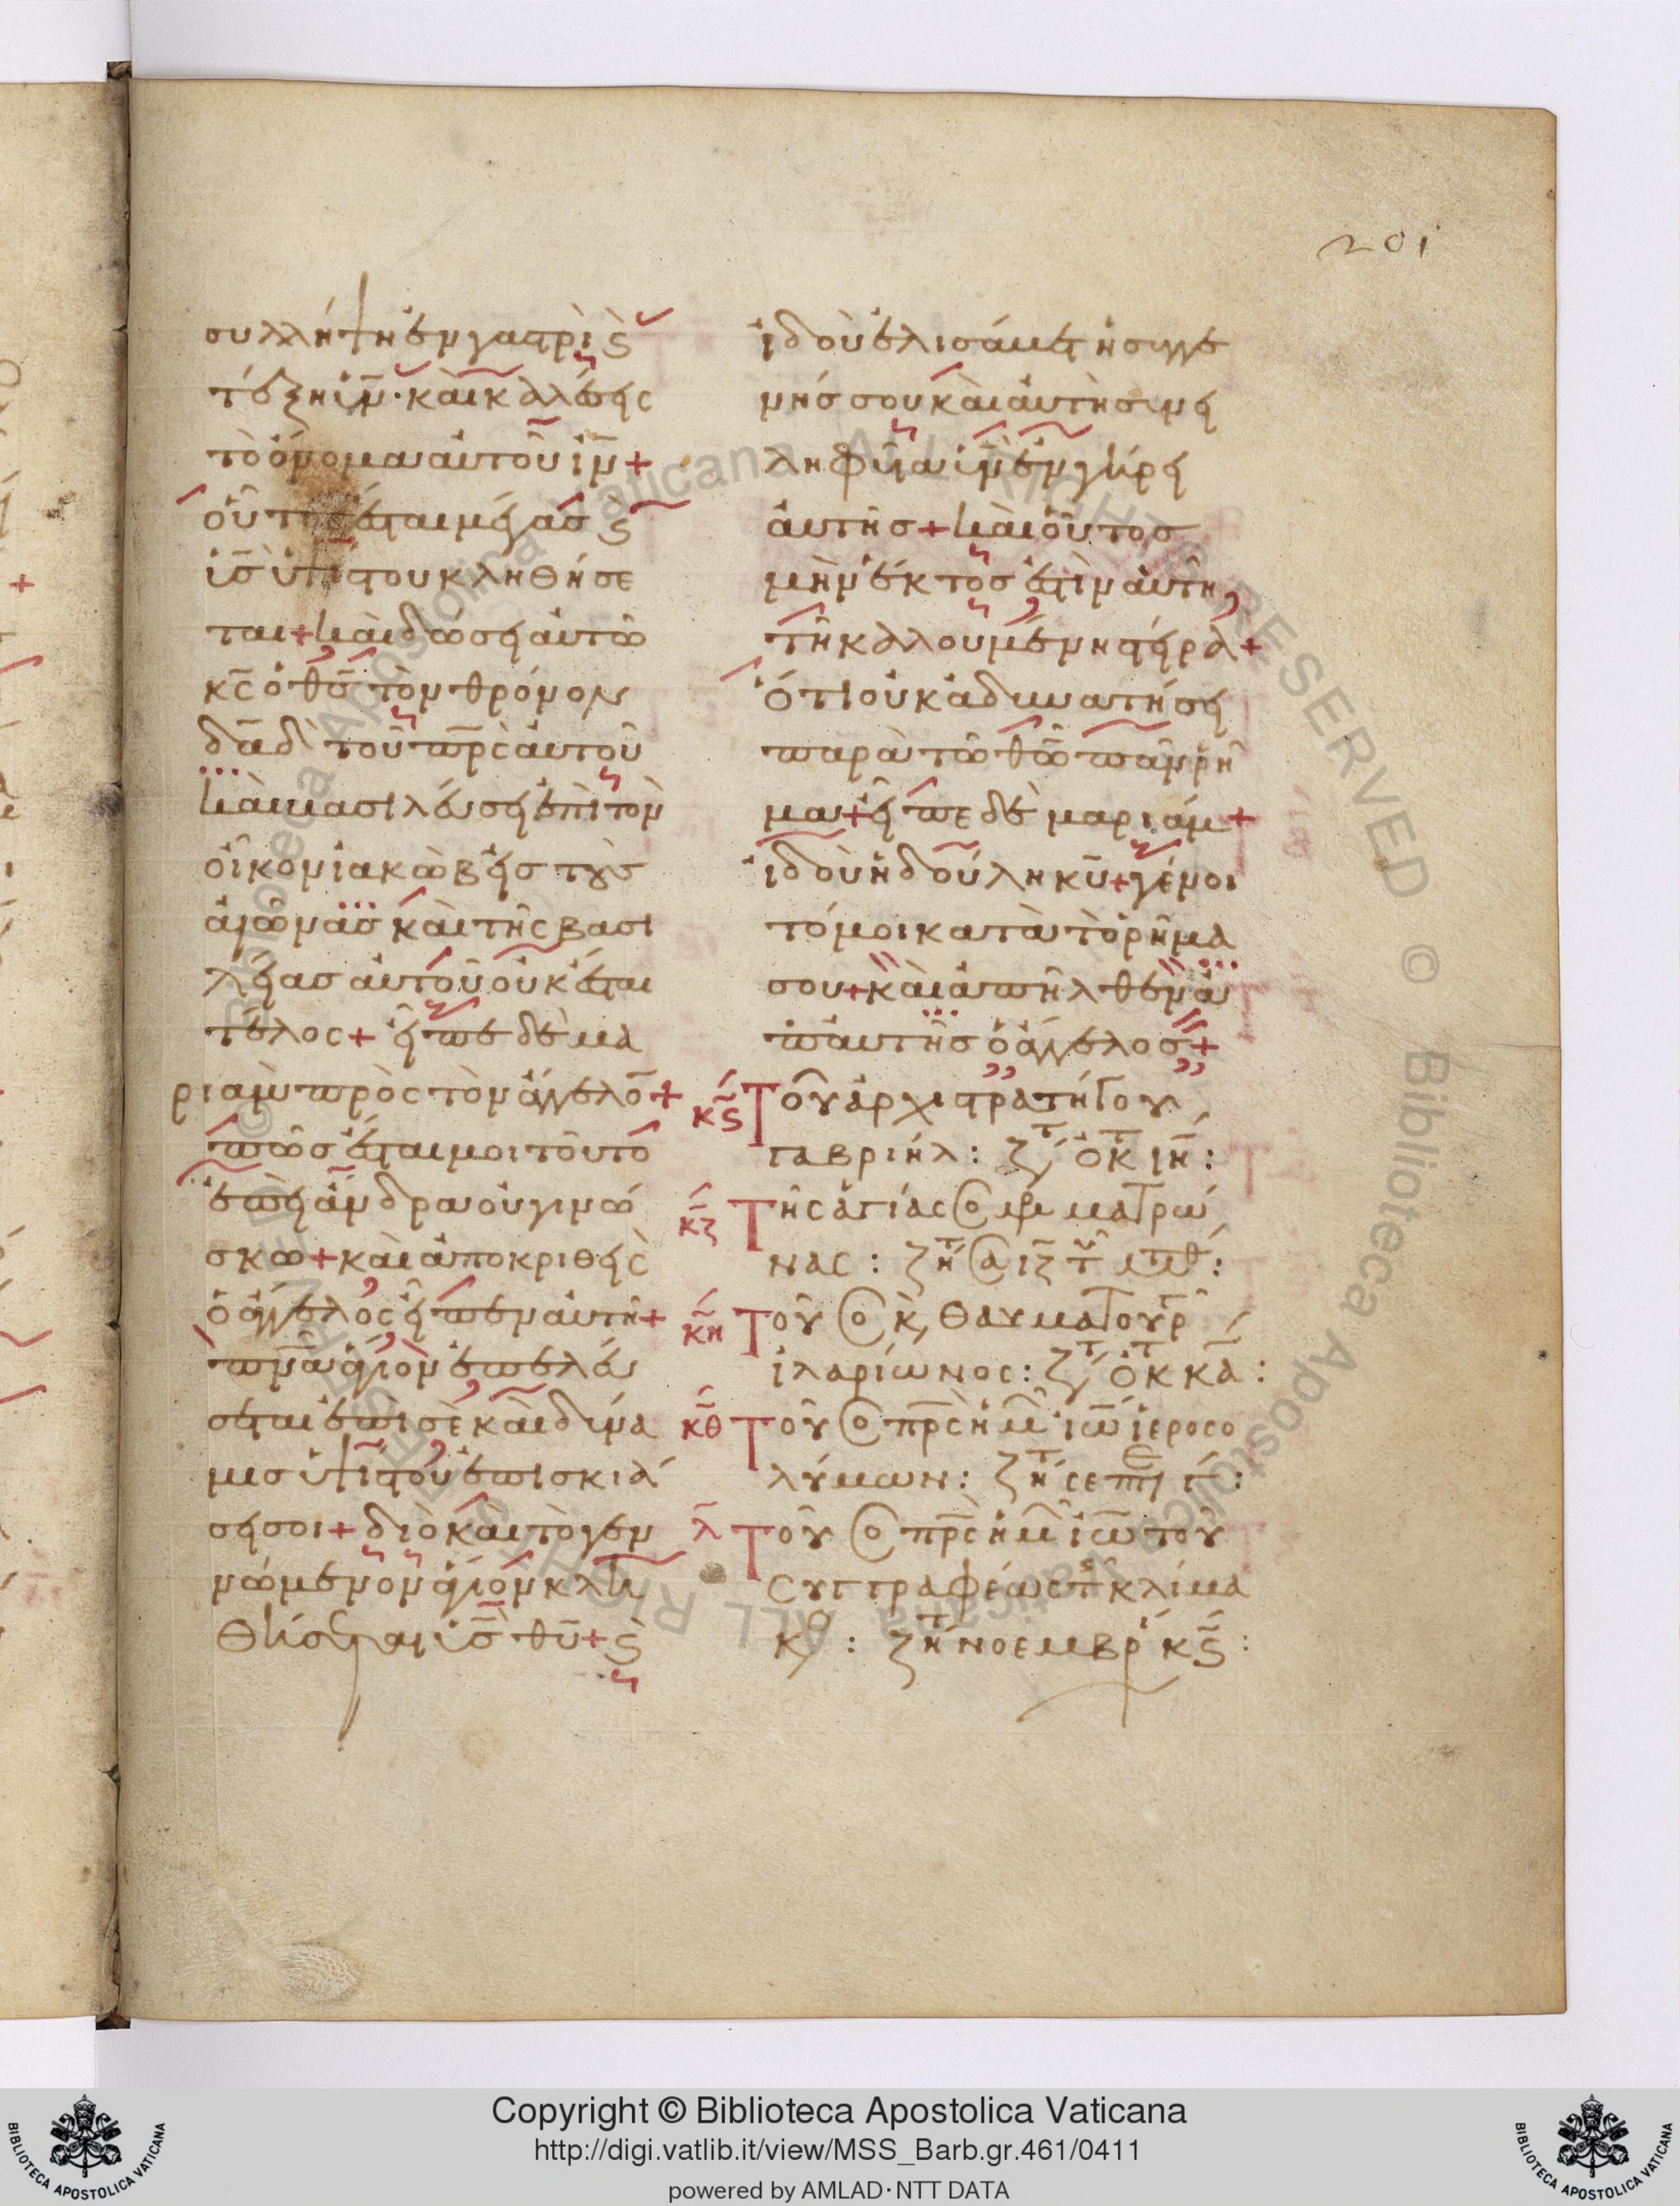 201
συλλήψη ἐν γαστρὶ ϛ
τέξη ϊν̄· καὶ καλέσεις
τὸ ὄνομα αὐτοῦ ἰν̄ +
οὗτος ἔσται μέγας ϛ̀
ϊς̄ ὑψίστου κληθήσε
ται + καὶ δώσει αὐτῶ
κ̄ς ὁ θ̄ς τὸν θρόνον
δᾱδ τοῦ π̄ρς αὐτοῦ
καὶ βασιλεύσει ἐπὶ τὸν
οἶκον ἰακὼβ εἰς τοὺς
αἰῶνας καὶ τῆς βασι
λείας αὐτοῦ οὐκ ἔσται
τέλος + εἶπε δὲ μα
ριὰμ πρὸς τὸν ἄγγελο̄ +
πῶς ἔσται μοι τοῦτο
ἐπεὶ ἄνδρα οὐ γινώ
σκω + καὶ ἀποκριθεὶς
ὁ ἄγγελος εἶπεν αὐτῆ +
π̄να ἅγιον ἐπελεύ
σεται ἐπὶ σὲ καὶ δύνα
μις ὑψίστου ἐπισκιά
σει σοι + διὸ καὶ τὸ γεν
νώμενον ἅγιον κλη
θήσεται ϊς̄ θῡ + ϛ̀
ἰδοὺ ἐλισάβετ ἡ συγγε
νής σου καὶ αὐτὴ συνει
ληφυῖα ϊν̄ ἐν γήρει
αὐτῆς + καὶ οὗτος
μὴν ἕκτος ἐστὶν αὐτῆ
τῆ καλουμένη στείρα +
ὅτι οὐκ ἀδυνατήσει
παρὰ τῶ θῶ̄ πᾶν ῥῆ
μα + εἶπε δὲ μαριάμ +
ἰδοὺ ἡ δούλη κῡ + γένοι
τό μοι κατὰ τὸ ῥῆμα
σου + καὶ ἀπῆλθεν ἀ
π' αὐτῆς ὁ ἄγγελος +
κϛ̄ Τοῦ ἀρχιστρατήγου
γαβριήλ: ζτ ὀκτ ιη̄:
κζ̄ Τῆς ἁγίας ματρώ
νας:
κη̄ Τοῦ ὁ κ, θαυματουρ
ἱλαρίωνος: ζτ ὀκτ κᾱ:
κθ̄ Τοῦ ὁ π̄ρς ἡμ ἰω̄ ἱεροσο
λύμων: ζητ σεπτ γ̄:
λ̄ Τοῦ ὁ π̄ρς ἡμ ἰω̄ τοῦ
συγγραφέως τῆς κλίμα
κο: ζητ νοεμβρ κϛ̄:
Copyright © Biblioteca Apostolica Vaticana
http://digi.vatlib.it/view/MSS_Barb.gr.461/0411
powered by AMLAD·NTT DATA